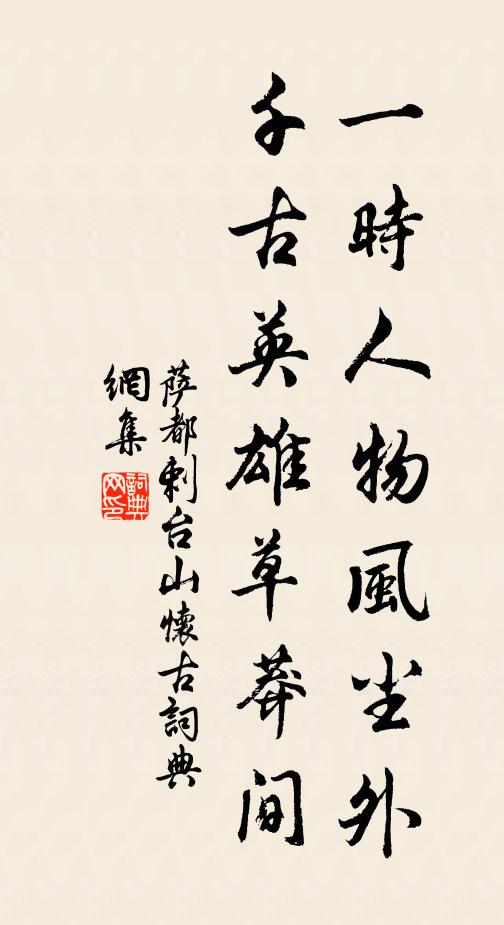 一時人物風尘外
千古英雄草莽間
薩都剌台山懷古詞典
網集
詞典
网印